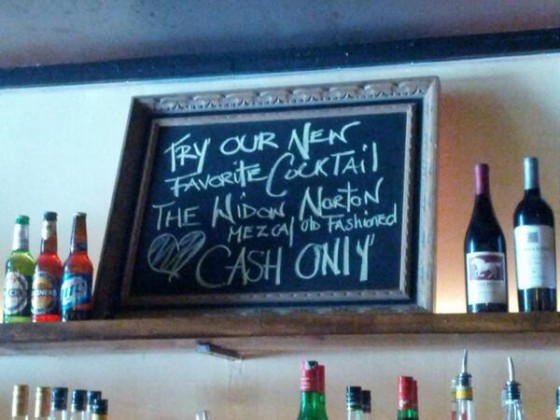 TRY OUR NEW
FAVORITE COCKTAIL
THE WIDOW NORTON
MEZCAL OLD FASHIONED
CASH ONLY